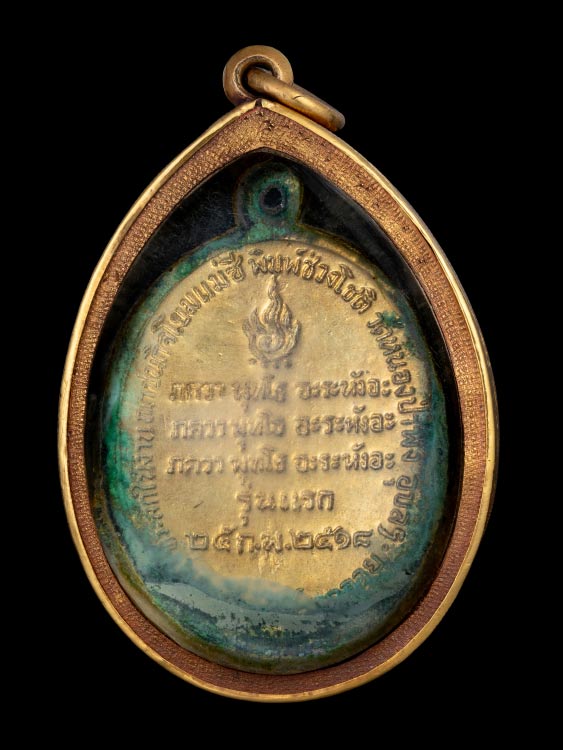 ที่ระลึกในงานฌาปนกิจโยมแม่ชี พิมพ์ช่วงโชติ วัดหนองป่าพง อุบลฯ
ภควา พุทโธ อะระหังอะ
ภควา พุทโธ อะระหังอะ
ภควา พุทโธ อะระหังอะ
รุ่นแรก
๒๕ ก.พ. ๒๕๑๘